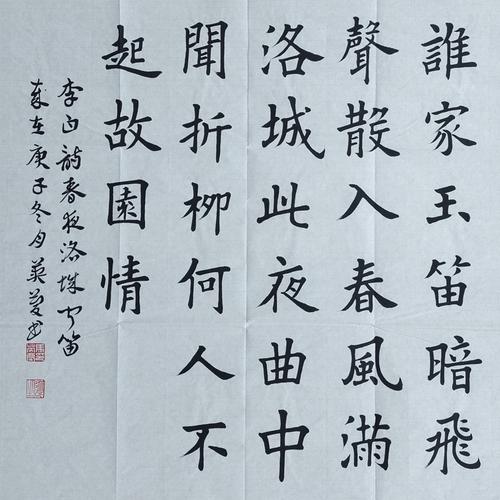 誰家玉笛暗飛
聲散入春風滿
洛城此夜曲中
聞折柳何人不
起故園情
李白詩春夜洛城闻笛
歲在庚子冬月英